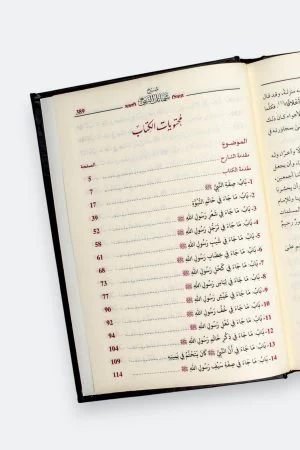 389
شمائل النبي
محتويات الكتاب
الموضوع الصفحة
مقدمة الشارح 5
مقدمة الكتاب 7
1- بَابُ: صِفَةِ النَّبِيِّ ﷺ 17
2- بَابُ: مَا جَاءَ فِي خَاتَمِ النُّبُوَّةِ 39
3- بَابُ: مَا جَاءَ فِي شَعْرِ رَسُولِ اللهِ ﷺ 52
4- بَابُ: مَا جَاءَ فِي تَرَجُّلِ رَسُولِ اللهِ ﷺ 58
5- بَابُ: مَا جَاءَ فِي شَيْبِ رَسُولِ اللهِ ﷺ 61
6- بَابُ: مَا جَاءَ فِي خِضَابِ رَسُولِ اللهِ ﷺ 68
7- بَابُ: مَا جَاءَ فِي كُحْلِ رَسُولِ اللهِ ﷺ 73
8- بَابُ: مَا جَاءَ فِي لِبَاسِ رَسُولِ اللهِ ﷺ 77
9- بَابُ: مَا جَاءَ فِي عَيْشِ رَسُولِ اللهِ ﷺ 90
10- بَابُ: مَا جَاءَ فِي خُفِّ رَسُولِ اللهِ ﷺ 92
11- بَابُ: مَا جَاءَ فِي نَعْلِ رَسُولِ اللهِ ﷺ 94
12- بَابُ: مَا جَاءَ فِي ذِكْرِ خَاتَمِ رَسُولِ اللهِ ﷺ 104
13- بَابُ: مَا جَاءَ فِي أَنَّ النَّبِيَّ ﷺ كَانَ يَتَخَتَّمُ فِي يَمِينِهِ 109
14- بَابُ: مَا جَاءَ فِي صِفَةِ سَيْفِ رَسُولِ اللهِ ﷺ 114